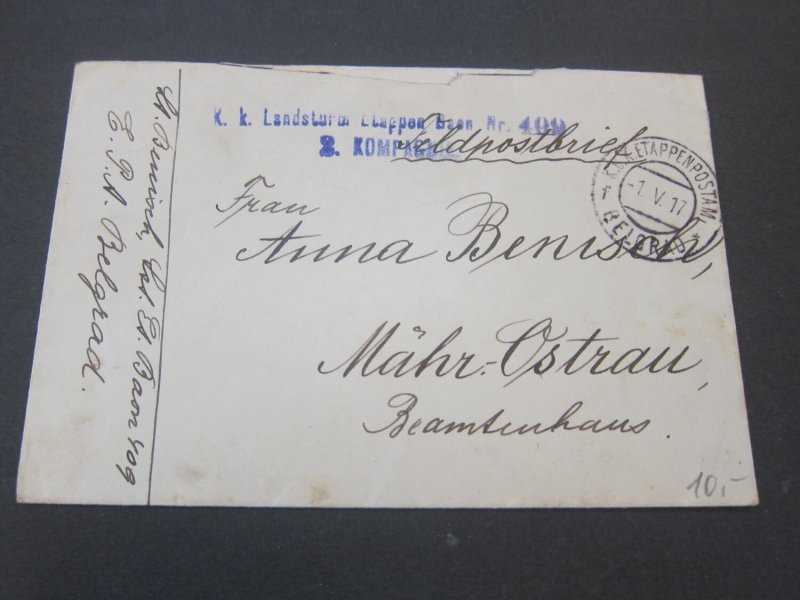 K. k. Landsturm Etappen Baon Nr. 409
2. KOMPAGNIE
Feldpostbrief
K.u.K. ETAPPENPOSTAMT
-1. V. 17
BELGRAD *
Frau
Anna Benisch,
Mähr.-Ostrau,
Beamtenhaus.
Benisch, Lst. Et. Baon 409
E. P. A. Belgrad.
10,-